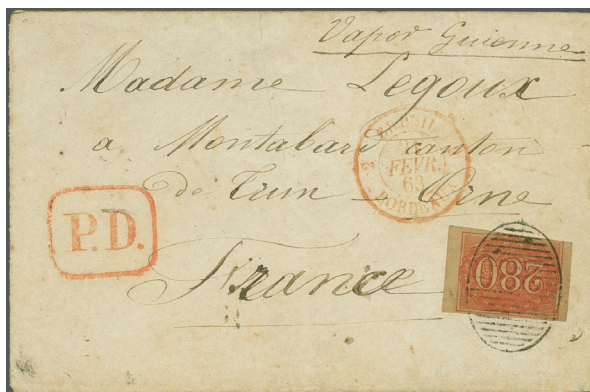 Vapor Guienne
Madame Legoux
a Montabard canton
de Trun Orne
France
P.D.
BRESIL
2
FEVR.
65
BORDEAUX
280